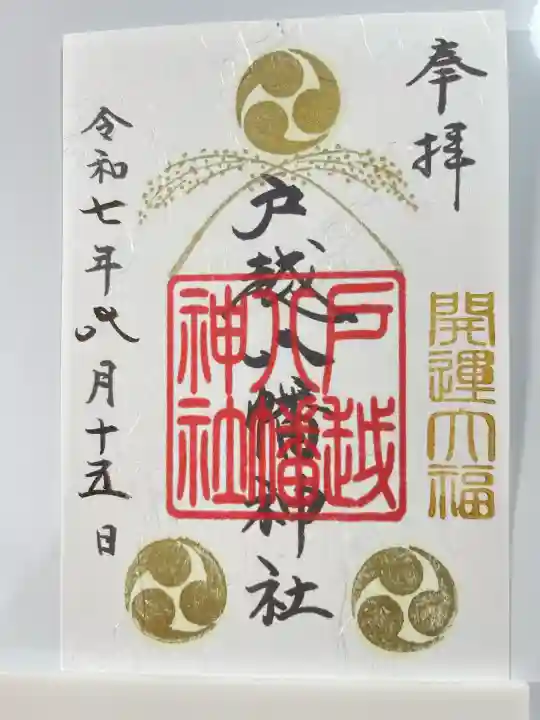 奉拝
開運大福
戸越八幡神社
戸越
八幡
神社
令和七年四月十五日